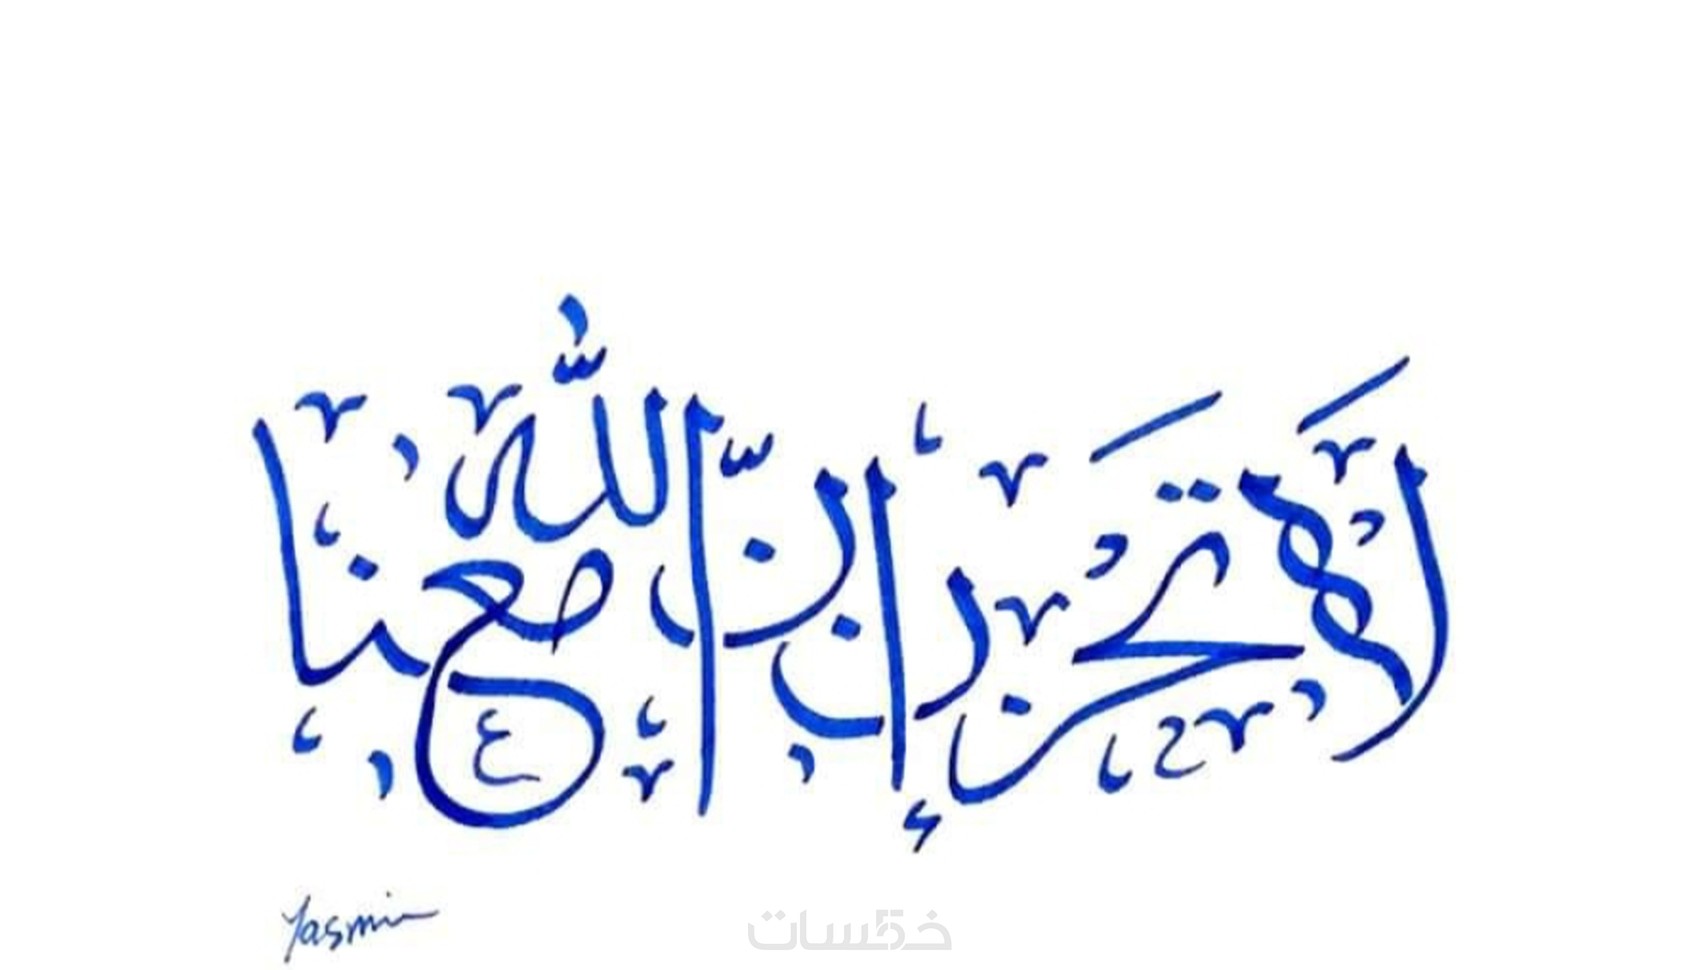 لا تحزن إن الله معنا
Yasmin
خمسات